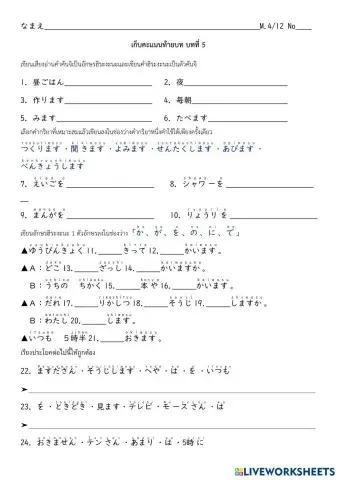 なまえ M.4/12 No
เก็บคะแนนท้ายบท บทที่ 5
เขียนเสียงอ่านคำคันจิเป็นอักษรฮิระงะนะและเขียนคำฮิระงะนะเป็นตัวคันจิ
1. 昼ごはん 2. 夜
3. 作ります 4. 毎朝
5. みます 6. たべます
เลือกคำกริยาที่เหมาะสมแล้วเขียนลงในช่องว่างคำกริยาหนึ่งคำใช้ได้เพียงครั้งเดียว
つくります・聞きます・よみます・せんたくします・あびます・
べんきょうします
7. えいごを 8. シャワーを
9. まんがを 10. りょうりを
เขียนอักษรฮิระงะนะ 1 ตัวอักษรลงในช่องว่าง「か、が、を、の、に、で」
▲ゆうびんきょく 11. きって 12. かいます。
▲A：どこ 13. ざっし 14. かいますか。
B：うちの ちかく 15. 本や 16. かいます。
▲A：だれ 17. りかしつ 18. そうじ 19. しますか。
B：わたし 20. します。
▲いつも 5時半 21. おきます。
เรียงประโยคต่อไปนี้ให้ถูกต้อง
22. ますださん・そうじします・へや・は・を・いつも
➤
23. を・ときどき・見ます・テレビ・モーズさん・は
➤
24. おきません・テンさん・あまり・は・5時に
LIVEWORKSHEETS